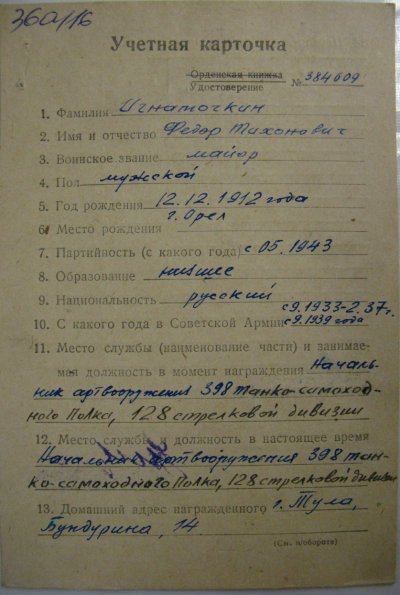 360/116
Учетная карточка
Орденская книжка
Удостоверение № 384609
1. Фамилия Игнаточкин
2. Имя и отчество Федор Тихонович
3. Воинское звание майор
4. Пол мужской
5. Год рождения 12.12.1912 года
г. Орел
6. Место рождения
7. Партийность (с какого года) с 05.1943
8. Образование низшее
9. Национальность русский
с 9.1933-2.37г.
10. С какого года в Советской Армии с 9.1939 года
11. Место службы (наименование части) и занимае-
мая должность в момент награждения Началь-
ник артвооружения 398 танко-самоход-
ного Полка, 128 стрелковой дивизии
12. Место службы и должность в настоящее время
Начальник артвооружения 398 тан-
ко-самоходного Полка, 128 стрелковой дивизии
13. Домашний адрес награжденного г. Тула,
Бундурина, 14
(См. н/обороте)